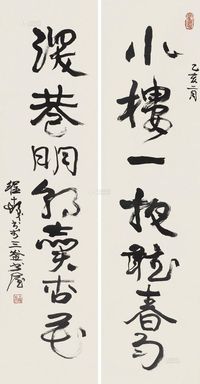 小樓一夜聽春雨
乙亥二月
深巷明朝賣杏花